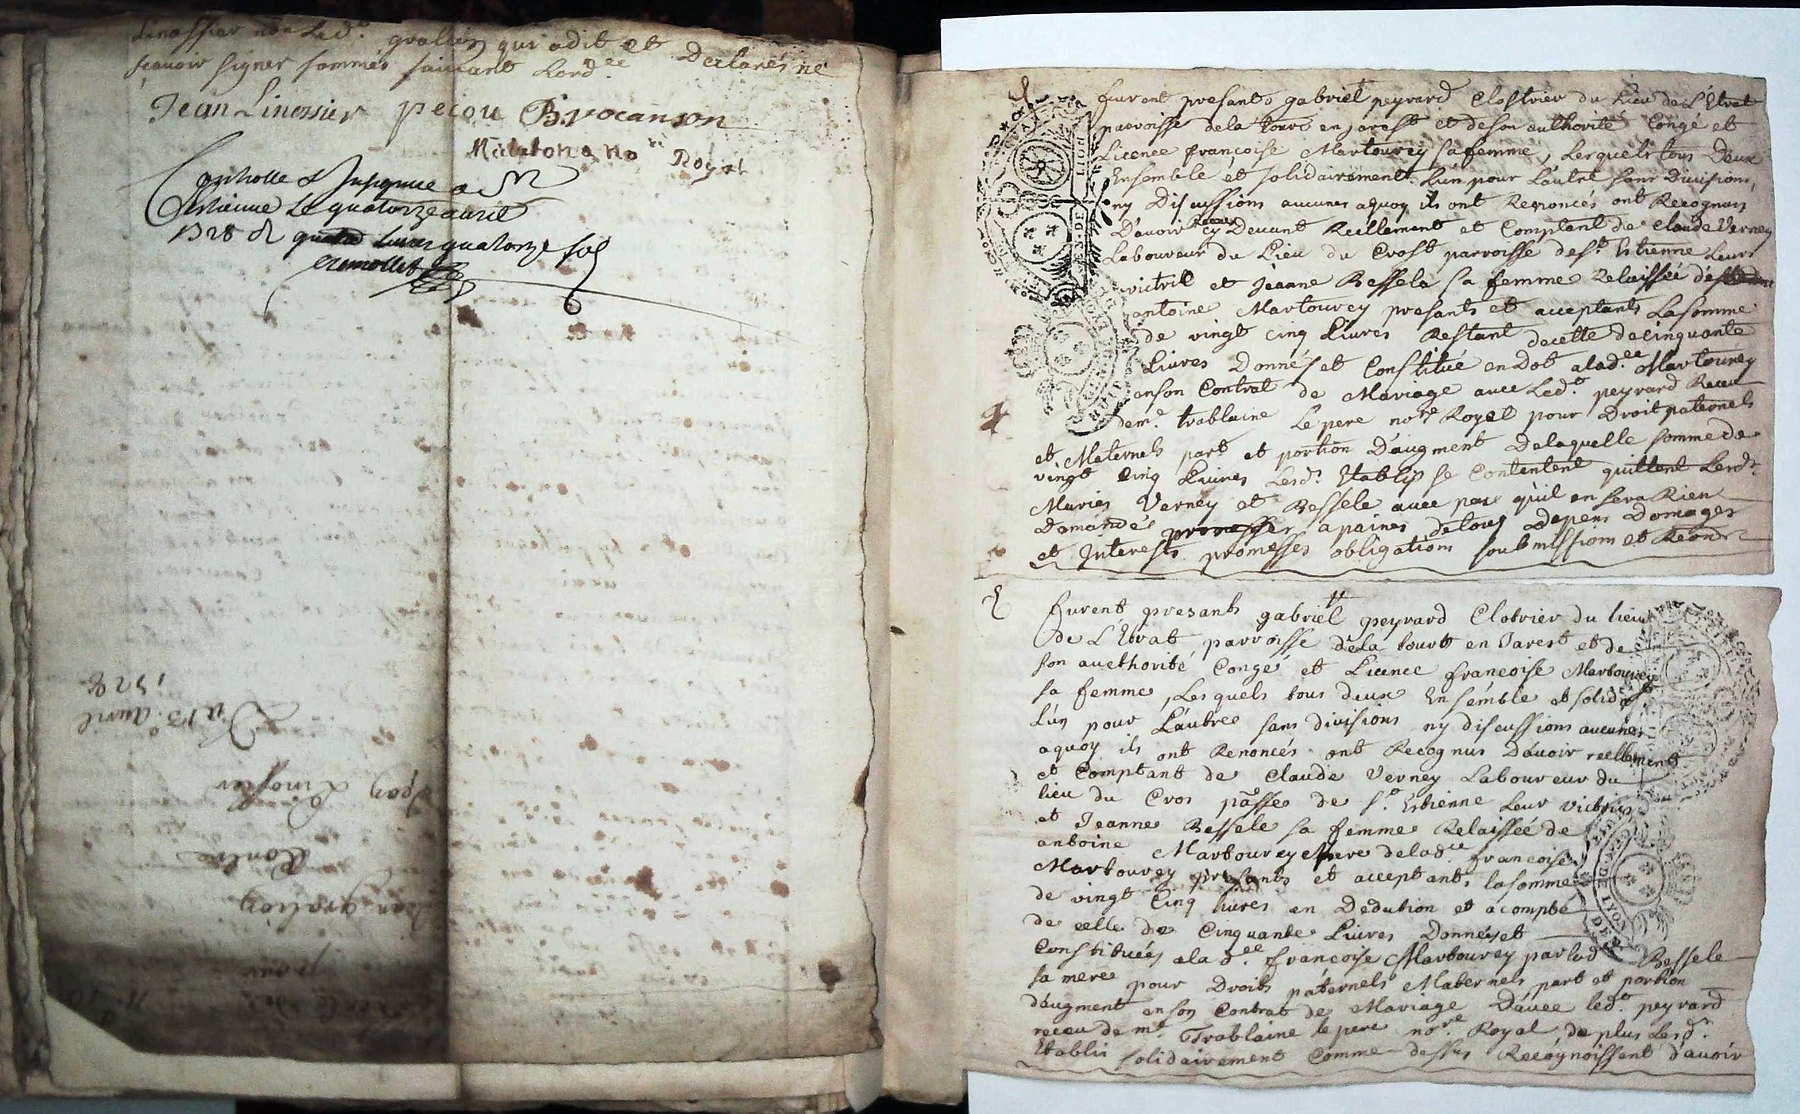 Linossier non Led.^t gralion qui adit et Declaré ne
sçavoir signer sommés suivant Lord.^ce
Jean Linossier peiou B. vocanson
no.^re Royal
Estienne Le quatorze avril
1728 R quatorze sols
furent presants gabriel peyrard Clostrier du Lieu de L'Etrat
parroisse dela tourt en jarest et deson authorité Congé et
Licence françoise Martourey sa femme, Lesquels tous Deux
Ensemble et solidairement Lun pour Lautre sans Divisions,
ny Discussions aucunes aquoy ils ont Renoncés ont Recognus
Davoir Receu cy Devant Reellement et Comptant de Claude Verney
Laboureur du Lieu du Crost parroisse de S.^t Estienne Leurs
victril et Jeanne Bessele sa femme Relaissée de
antoine Martourey presants et acceptants Lasomme
de vingt cinq Livres Restant decelle decinquante
Livres Donnés et Constitué en Dot alad.^ee Martourey
enson Contrat de Mariage avec Led.^t peyrard Receu
dem.^e trablaine Le pere no.^re Royal pour Droit paternels
et Maternels part et portion D'augment Delaquelle somme de
vingt Cinq Livres Lesd.^s Etablis se Contentent quittent Lesd.^s
Mariés Verney et Bessele avec pas qu'il en sera Rien
Damandé promesses apaines detous Depens Domages
et Interests promesses obligations soubmissions et Renon
furent presants gabriel peyrard Clotrier du lieu
de L'Etrat parroisse dela tourt en Jarest et de
son aucthorité Congé et Licence francoise Martourey
sa femme, Lesquels tous deux Ensemble et solid.^t
L'un pour L'autre sans divisions ny discussions aucunes
aquoy ils ont Renoncés ont Recognus Davoir reellement
et Comptant de Claude Verney Laboureur du
lieu du Cros pâsse de S.^t Estienne Leur victril
et Jeanne Bessele sa femme Relaissée de
antoine Martourey Mere delad.^ee francoise
Martourey presants et acceptants lasomme
de vingt Cinq livres en Deduction et acompte
de celle de Cinquante Livres Donnéset
Constituées alad.^ee françoise Martourey parlad Bessele
sa mere pour Droits paternels Maternels part et portion
d'augment enson Contrat de Mariage Davec led.^t peyrard
receu de m.^e Trablaine le pere no.^re Royal, de plus Lesd.^s
Etablis solidairement Comme dessus Recognoissent d'avoir
Du 13.^e avril
1728
Jean Linossier
Contre
Jean gralion
pour